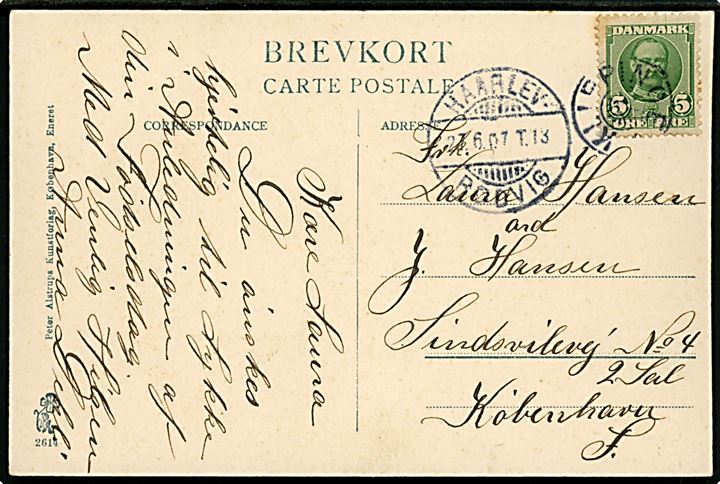 BREVKORT
CARTE POSTALE
CORRESPONDANCE
ADRESSE
DANMARK
5 5
ØRE ØRE
HAARLEV-
27.6.07 T.13
RØDVIG
KLIPPINGE
Kære Laura
Du ønskes
hjertelig til Lykke
i Anledningen af
din Fødselsdag.
Med Venlig Hilsen
Anna
Frk.
Laura Hansen
ard
J. Hansen
Sindsvilevej No 4
2 Sal
København
F.
Peter Alstrups Kunstforlag, København, Eneret
2614